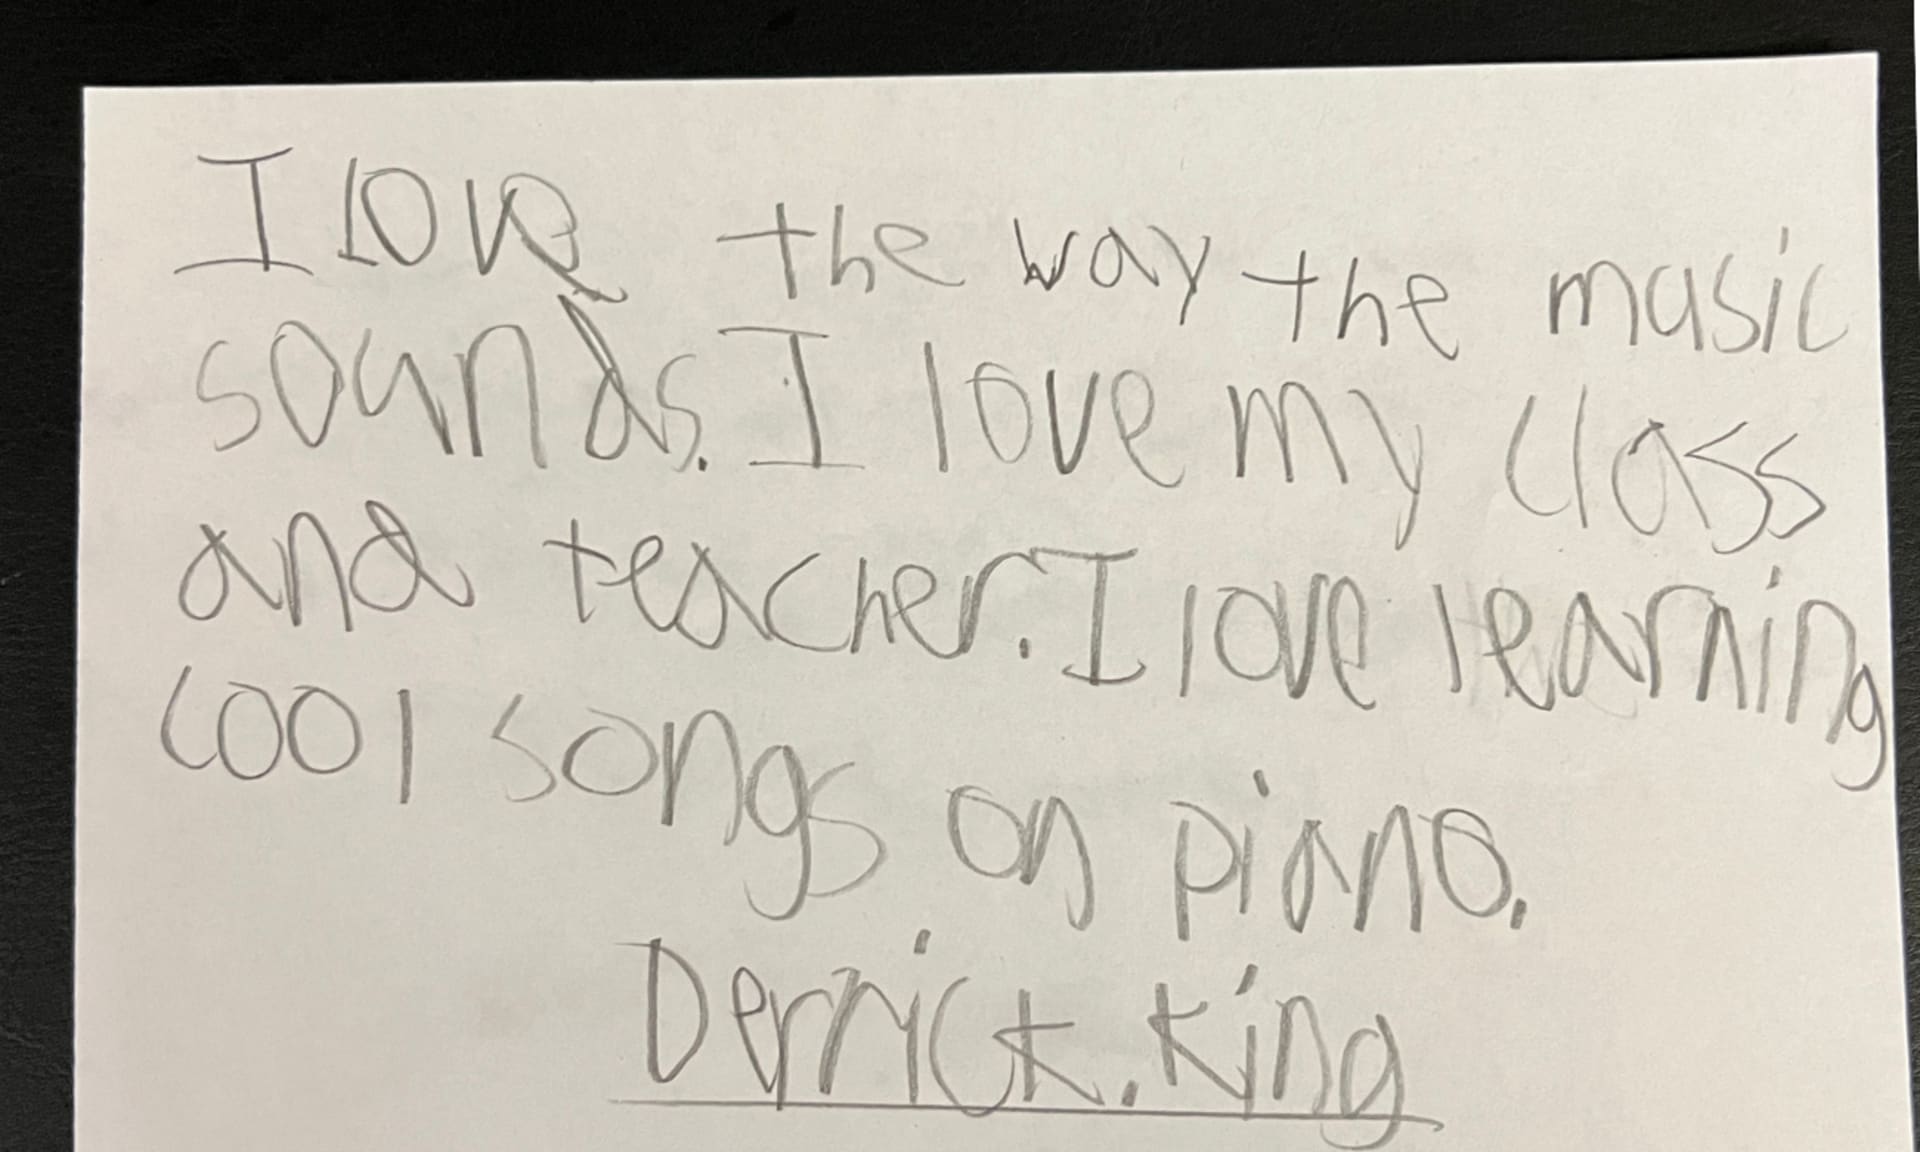 I love the way the music
sounds. I love my class
and teacher. I love learning
cool songs on piano.
Derrick. King